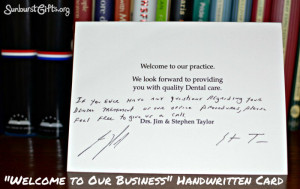 SunburstGifts.org
Welcome to our practice.
We look forward to providing
you with quality Dental care.
If you ever have any questions regarding your
dental treatment or our office procedures, please
feel free to give us a call
Drs. Jim & Stephen Taylor
"Welcome to Our Business" Handwritten Card